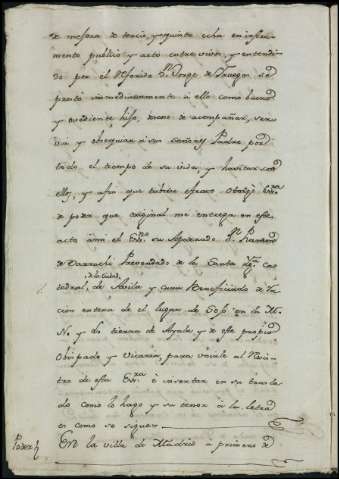 de mejora de tercio, y quinto echa en instru-
mento publico y acto entre vivos, y entendi-
do por el referido Dn. Jorge de
prontó inmediatamente à ello como bueno
y obediente hijo, viene de acompañar, ser-
vir y obsequiar à sus señores Padres por
todo el tiempo de su vida, y havitar con
ellos, y afin que tubiese efecto Otorgó Essra
de poder que original me entrega en este
acto àmi el Essno su Apoderado Dn.
de Prevendado de la Santa Yga Ca-
de la ciudad
tedral, de Avila y cura Beneficiado de ra-
cion entera de el lugar de en la M.
N. y L. tierra de Ayala y de este propio
Obispado y Vicaria, para unirle al Regis-
tro de esta Essra è insertar en su trasla-
do como lo hago y su tenor à la letra
es como se sigue
Poder
En la villa de Madrid à primero de